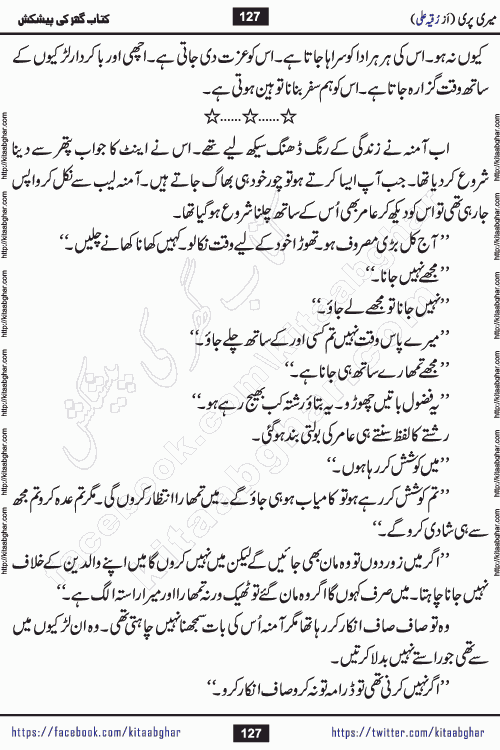 میری پری (از رُقیہ علی) 127 کتاب گھر کی پیشکش
کیوں نہ ہو۔ اس کی ہر ہر ادا کو سراہا جاتا ہے۔ اس کو عزت دی جاتی ہے۔ اچھی اور با کردار لڑکیوں کے
ساتھ وقت گزارہ جاتا ہے۔ اس کو ہم سفر بنانا توہین ہوتی ہے۔
☆......☆......☆
اب آمنہ نے زندگی کے رنگ ڈھنگ سیکھ لیے تھے۔ اس نے اینٹ کا جواب پتھر سے دینا
شروع کر دیا تھا۔ جب آپ ایسا کرتے ہو تو چور خود ہی بھاگ جاتے ہیں۔ آمنہ لیب سے نکل کر واپس
جا رہی تھی تو اس کو دیکھ کر عامر بھی اُس کے ساتھ چلنا شروع ہو گیا تھا۔
’’آج کل بڑی مصروف ہو۔ تھوڑا خود کے لیے وقت نکالو۔ کہیں کھانا کھانے چلیں۔‘‘
’’مجھے نہیں جانا۔‘‘
’’نہیں جانا تو مجھے لے جاؤ۔‘‘
’’میرے پاس وقت نہیں تم کسی اور کے ساتھ چلے جاؤ۔‘‘
’’مجھے تمھارے ساتھ ہی جانا ہے۔‘‘
’’یہ فضول باتیں چھوڑو۔ یہ بتاؤ رشتہ کب بھیج رہے ہو۔‘‘
رشتے کا لفظ سنتے ہی عامر کی بولتی بند ہو گئی۔
’’میں کوشش کر رہا ہوں۔‘‘
’’تم کوشش کر رہے ہو تو کامیاب ہو ہی جاؤ گے۔ میں تمھارا انتظار کروں گی۔ مگر تم عدہ کرو تم مجھ
سے ہی شادی کرو گے۔‘‘
’’اگر میں زور دوں تو وہ مان بھی جائیں گے لیکن میں نہیں کروں گا میں اپنے والدین کے خلاف
نہیں جانا چاہتا۔ میں صرف کہوں گا اگر وہ مان گئے تو ٹھیک ورنہ تمھارا اور میرا راستہ الگ ہے۔‘‘
وہ تو صاف صاف انکار کر رہا تھا مگر آمنہ اُس کی بات سمجھنا نہیں چاہتی تھی۔ وہ ان لڑکیوں میں
سے تھی جو راستے نہیں بدلا کرتیں۔
’’اگر نہیں کرنی تھی تو ڈرامہ تو نہ کرو صاف انکار کرو۔‘‘
https://facebook.com/kitaabghar 127 https://twitter.com/kitaabghar
http://kitaabghar.com http://kitaabghar.com http://kitaabghar.com http://kitaabghar.com http://kitaabghar.com http://kitaabghar.com
کتاب گھر کی پیشکش
facebook.com/kitaabghar
kitaabghar.com